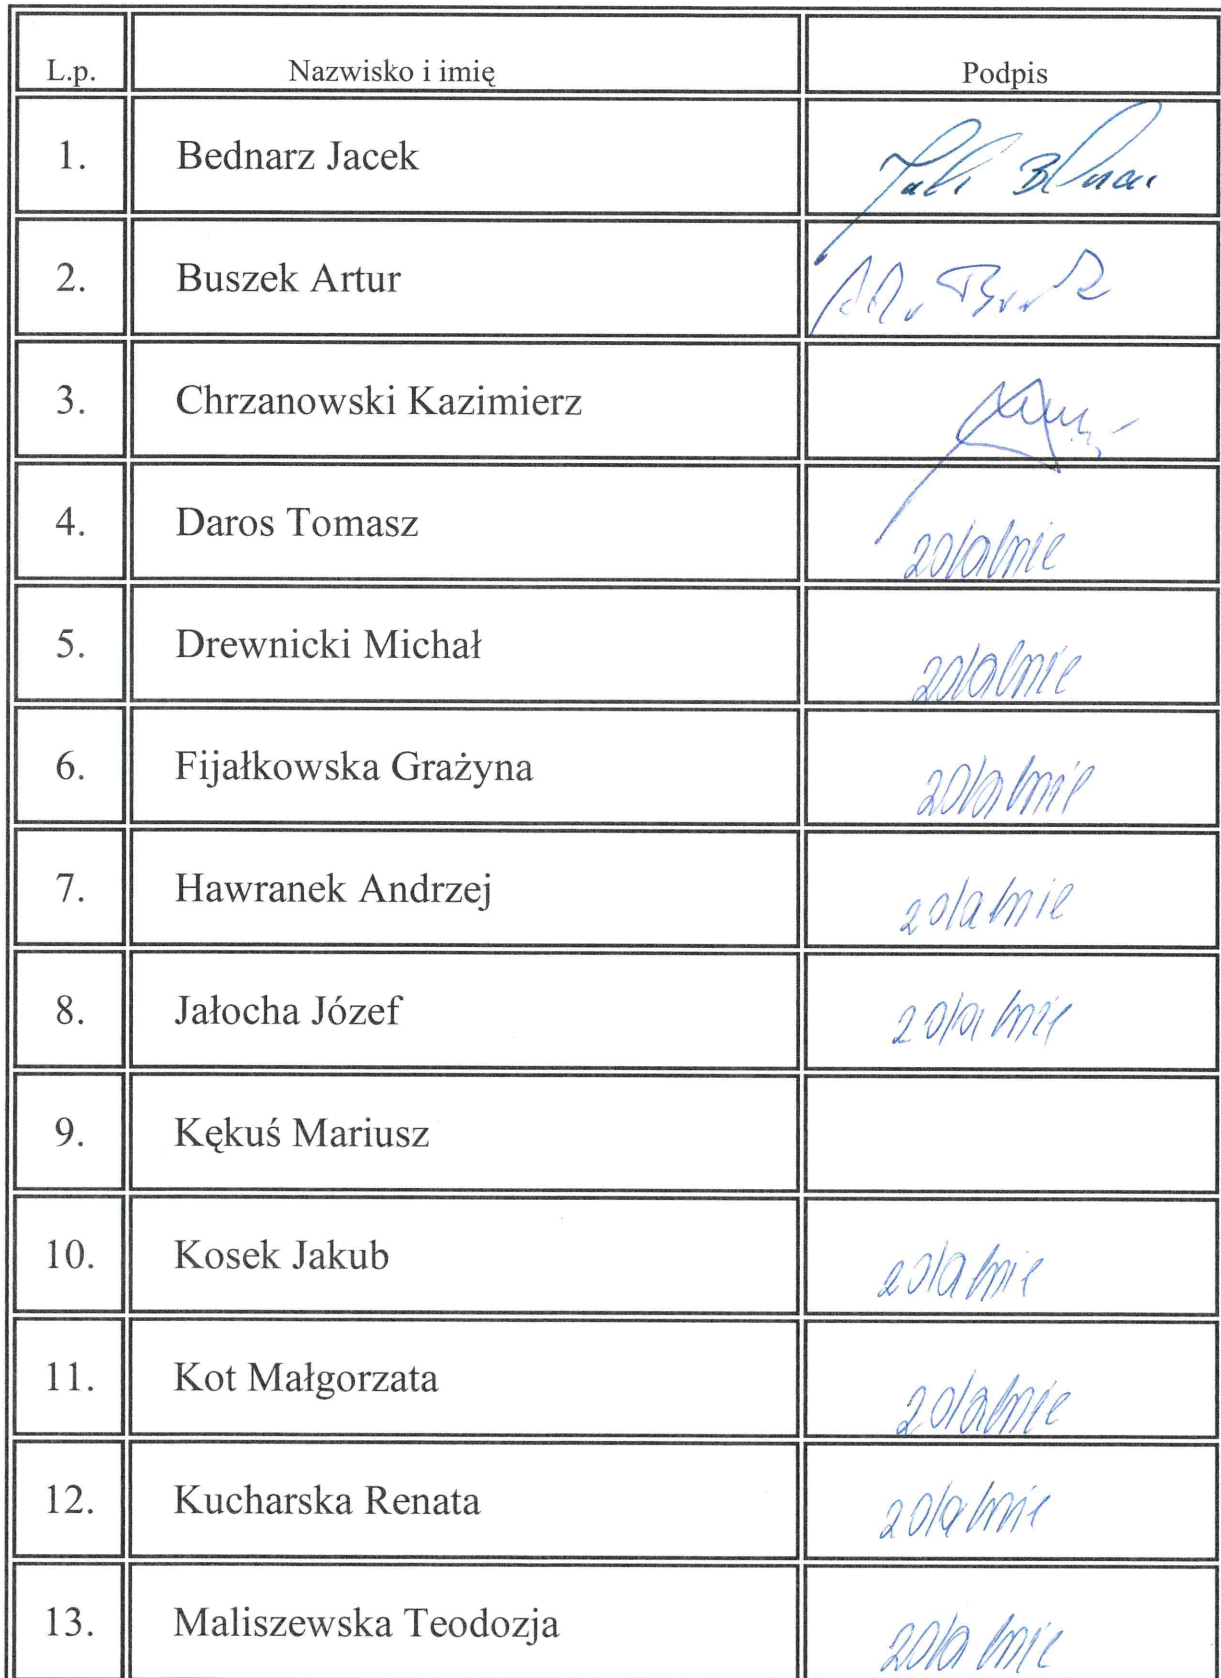 L.p. Nazwisko i imię Podpis
1. Bednarz Jacek
2. Buszek Artur
3. Chrzanowski Kazimierz
4. Daros Tomasz zdalnie
5. Drewnicki Michał zdalnie
6. Fijałkowska Grażyna zdalnie
7. Hawranek Andrzej zdalnie
8. Jałocha Józef zdalnie
9. Kękuś Mariusz
10. Kosek Jakub zdalnie
11. Kot Małgorzata zdalnie
12. Kucharska Renata zdalnie
13. Maliszewska Teodozja zdalnie